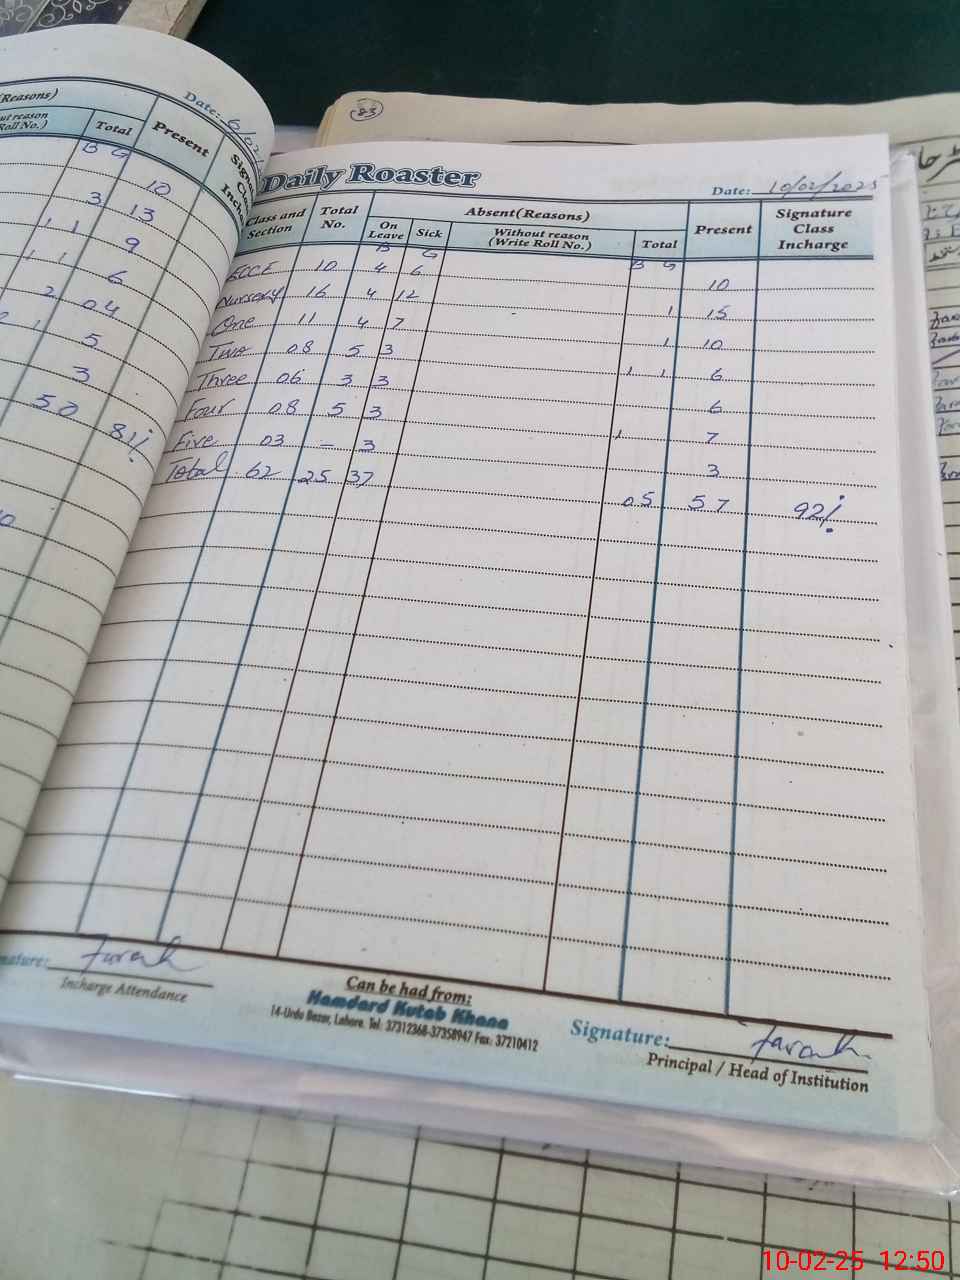 Reasons)
ut reason
Roll No.)
Total
Present
Date: 6/02/
B G
10
3 13
1 1 9
1 1 6
2 04
2 1 5
3
50 81%
83
Daily Roaster
Date: 10/02/2025
Class and Section
Total No.
Absent(Reasons)
On Leave
Sick
Without reason
(Write Roll No.)
Total
Present
Signature Class Incharge
B G B G
ECCE 10 4 6 10
Nursery 16 4 12 1 15
One 11 4 7 1 10
Two 08 5 3 1 1 6
Three 06 3 3 6
Four 08 5 3 1 7
Five 03 – 3 3
Total 62 25 37 05 57 92%
nature:
Incharge Attendance
Can be had from:
Hamdard Kutab Khana
14-Urdu Bazar, Lahore. Tel: 37312368-37358947 Fax: 37210412
Signature: Farrah
Principal / Head of Institution
10-02-25 12:50